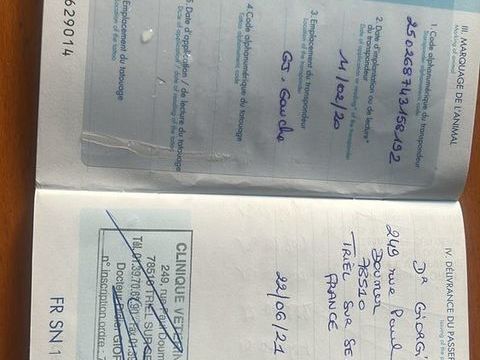 III. MARQUAGE DE L'ANIMAL
Marking of animal
1. Code alphanumérique du transpondeur
Transponder alphanumeric code
250268743158192
2. Date d'implantation ou de lecture*
du transpondeur
Date of application or reading* of the transponder
11/02/20
3. Emplacement du transpondeur
Location of the transponder
GJ. Gauche
4. Code alphanumérique du tatouage
Tattoo alphanumeric code
5. Date d'application / de lecture du tatouage
Date of application / date of reading of the tattoo
Emplacement du tatouage
Location of the tattoo
629014
IV. DÉLIVRANCE DU PASSE
Issuing of the
Dr
249 rue Paul
Doumer
78510
TRIEL SUR SE
FRANCE
22/06/21
CLINIQUE VETE
249, rue
78510 TRIEL SUR
Tél. 01.39.70.
Docteur
n° inscription ordre :
FR SN 1